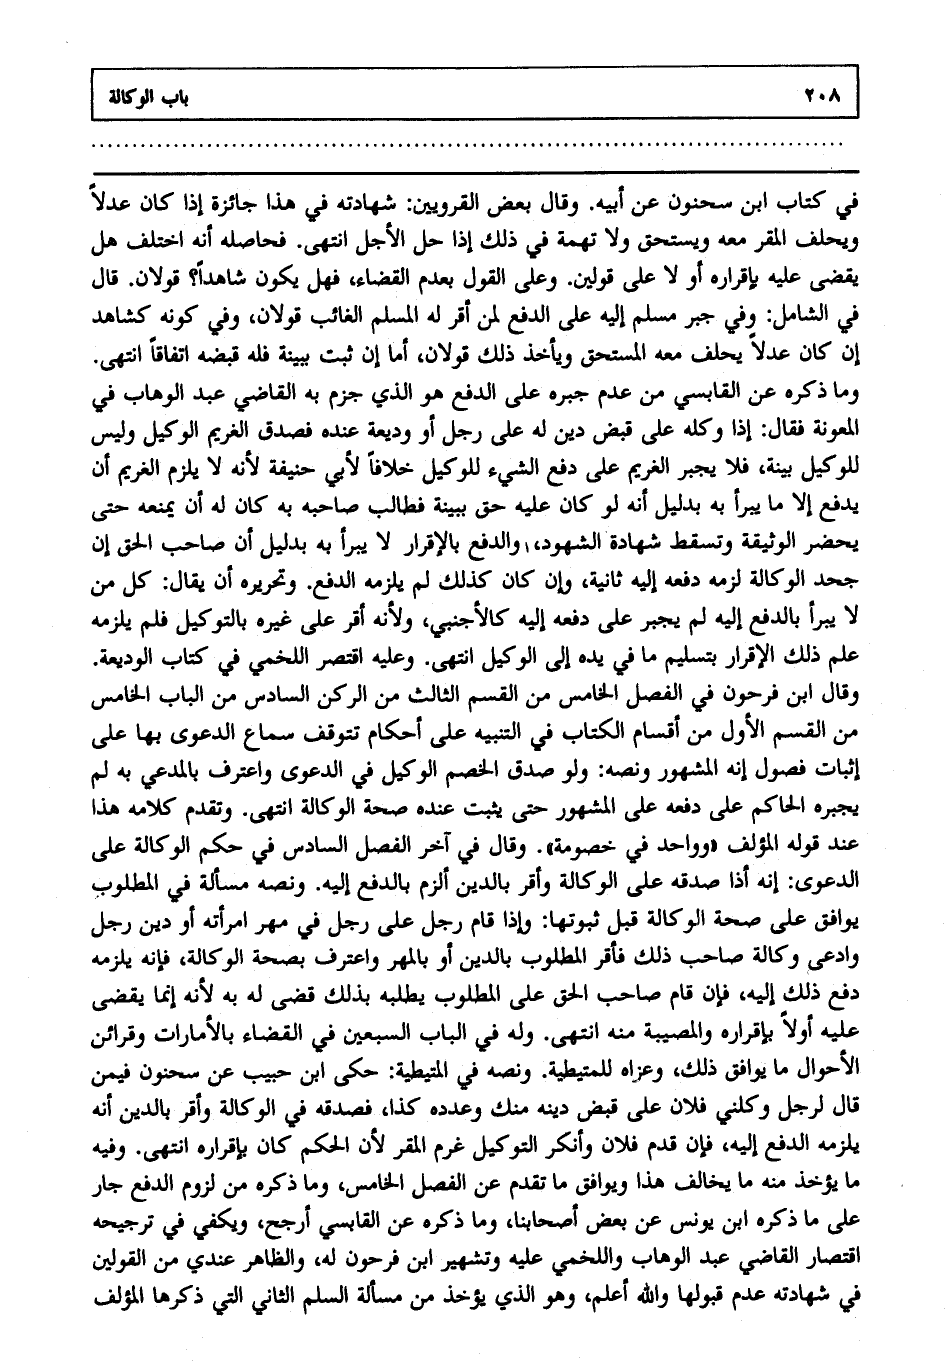 ٢٠٨ باب الوكالة
في كتاب ابن سحنون عن أبيه. وقال بعض القرويين: شهادته في هذا جائزة إذا كان عدلاً
ويحلف المقر معه ويستحق ولا تهمة في ذلك إذا حل الأجل انتهى. فحاصله أنه اختلف هل
يقضى عليه بإقراره أو لا على قولين. وعلى القول بعدم القضاء، فهل يكون شاهداً؟ قولان. قال
في الشامل: وفي جبر مسلم إليه على الدفع لمن أقر له المسلم الغائب قولان، وفي كونه كشاهد
إن كان عدلاً يحلف معه المستحق ويأخذ ذلك قولان، أما إن ثبت ببينة فله قبضه اتفاقاً انتهى.
وما ذكره عن القابسي من عدم جبره على الدفع هو الذي جزم به القاضي عبد الوهاب في
المعونة فقال: إذا وكله على قبض دين له على رجل أو وديعة عنده فصدق الغريم الوكيل وليس
للوكيل بينة، فلا يجبر الغريم على دفع الشيء للوكيل خلافاً لأبي حنيفة لأنه لا يلزم الغريم أن
يدفع إلا ما يبرأ به بدليل أنه لو كان عليه حق ببينة فطالب صاحبه به كان له أن يمنعه حتى
يحضر الوثيقة وتسقط شهادة الشهود، والدفع بالإقرار لا يبرأ به بدليل أن صاحب الحق إن
جحد الوكالة لزمه دفعه إليه ثانية، وإن كان كذلك لم يلزمه الدفع. وتحريره أن يقال: كل من
لا يبرأ بالدفع إليه لم يجبر على دفعه إليه كالأجنبي، ولأنه أقر على غيره بالتوكيل فلم يلزمه
علم ذلك الإقرار بتسليم ما في يده إلى الوكيل انتهى. وعليه اقتصر اللخمي في كتاب الوديعة.
وقال ابن فرحون في الفصل الخامس من القسم الثالث من الركن السادس من الباب الخامس
من القسم الأول من أقسام الكتاب في التنبيه على أحكام تتوقف سماع الدعوى بها على
إثبات فصول إنه المشهور ونصه: ولو صدق الخصم الوكيل في الدعوى واعترف بالمدعي به لم
يجبره الحاكم على دفعه على المشهور حتى يثبت عنده صحة الوكالة انتهى. وتقدم كلامه هذا
عند قوله المؤلف «وواحد في خصومة». وقال في آخر الفصل السادس في حكم الوكالة على
الدعوى: إنه أذا صدقه على الوكالة وأقر بالدين ألزم بالدفع إليه. ونصه مسألة في المطلوب
يوافق على صحة الوكالة قبل ثبوتها: وإذا قام رجل على رجل في مهر امرأته أو دين رجل
وادعى وكالة صاحب ذلك فأقر المطلوب بالدين أو بالمهر واعترف بصحة الوكالة، فإنه يلزمه
دفع ذلك إليه، فإن قام صاحب الحق على المطلوب يطلبه بذلك قضى له به لأنه إنما يقضى
عليه أولاً بإقراره والمصيبة منه انتهى. وله في الباب السبعين في القضاء بالأمارات وقرائن
الأحوال ما يوافق ذلك، وعزاه للمتيطية. ونصه في المتيطية: حكى ابن حبيب عن سحنون فيمن
قال لرجل وكلني فلان على قبض دينه منك وعدده كذا، فصدقه في الوكالة وأقر بالدين أنه
يلزمه الدفع إليه، فإن قدم فلان وأنكر التوكيل غرم المقر لأن الحكم كان بإقراره انتهى. وفيه
ما يؤخذ منه ما يخالف هذا ويوافق ما تقدم عن الفصل الخامس، وما ذكره من لزوم الدفع جار
على ما ذكره ابن يونس عن بعض أصحابنا، وما ذكره عن القابسي أرجح، ويكفي في ترجيحه
اقتصار القاضي عبد الوهاب واللخمي عليه وتشهير ابن فرحون له، والظاهر عندي من القولين
في شهادته عدم قبولها والله أعلم، وهو الذي يؤخذ من مسألة السلم الثاني التي ذكرها المؤلف